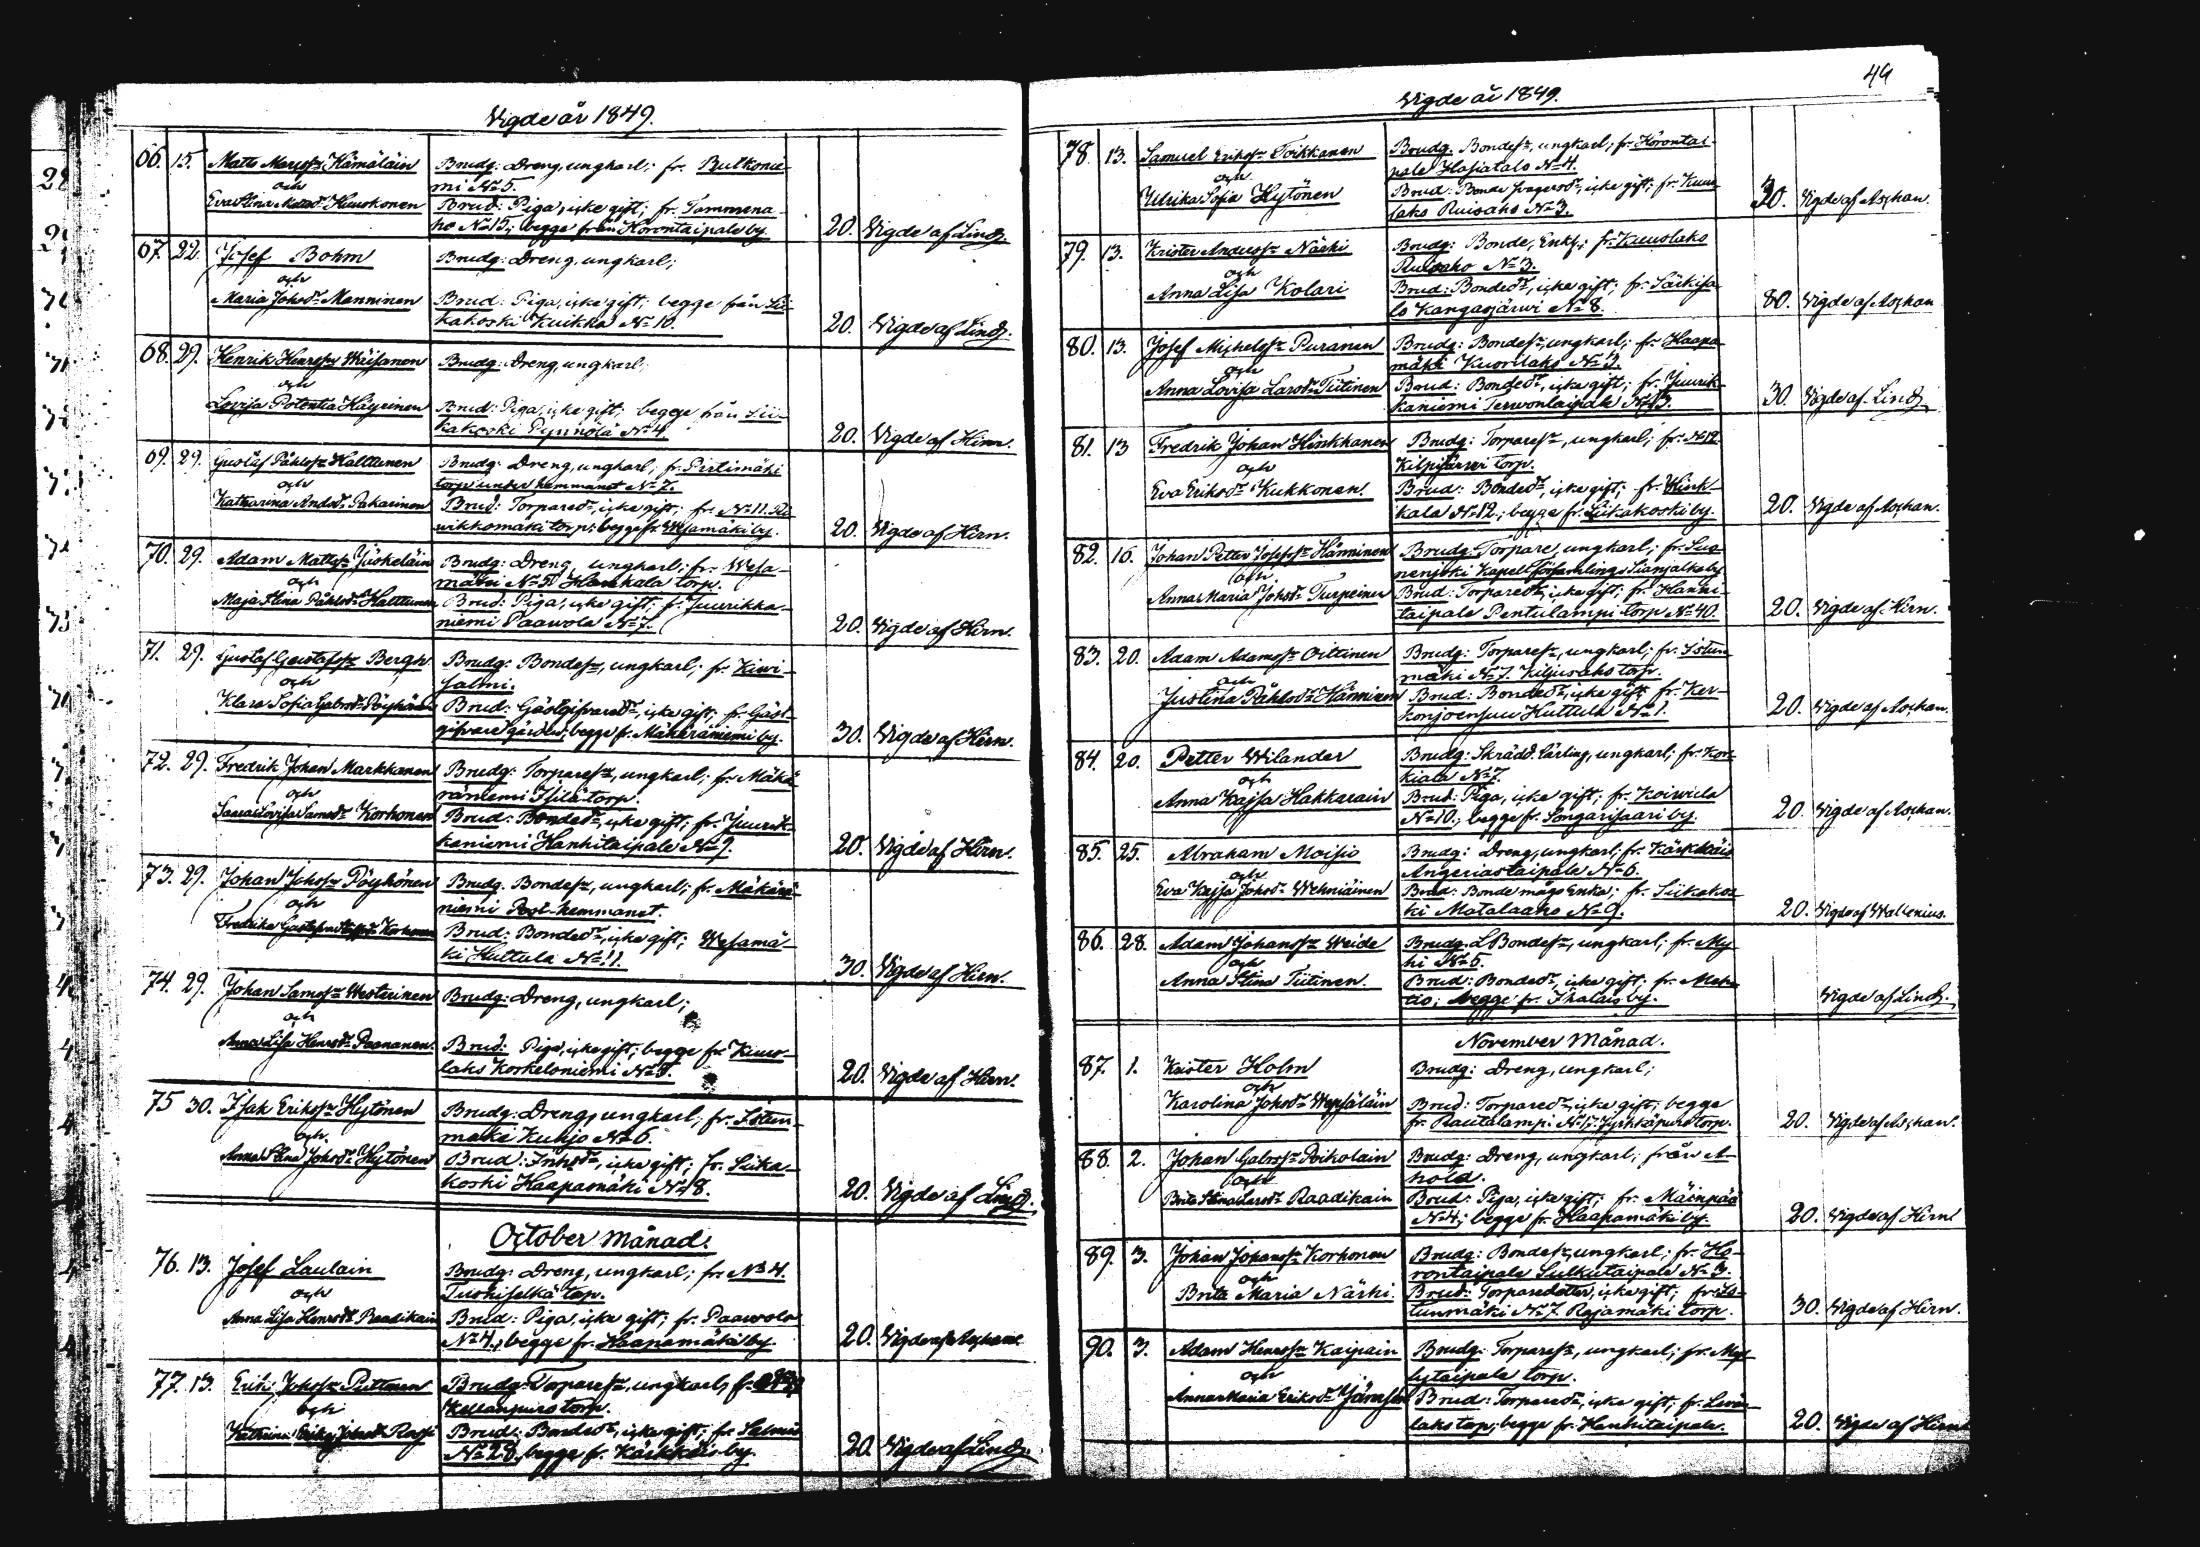 Vigde år 1849.
66. 15. Matts Matss: Hämäläin
och
Eva Stina Matsd: Kuuskonen
Brudg: Dreng, ungkarl; fr. Putkonie-
mi No 5.
Brud: Piga, icke gift; fr. Tammena-
ho No 15; begge från Korontaipale by.
20. Vigde af Lind.
67. 22. Josef Bohm
och
Maria Johsd: Manninen
Brudg: Dreng, ungkarl;
Brud: Piga, icke gift; begge från Sii-
kakoski Kuikka No 10.
20. Vigde af Lind.
68. 29. Henrik Henrss: Wäisänen
och
Lovisa Potentia Häyrinen
Brudg: Dreng, ungkarl;
Brud: Piga, icke gift; begge från Sii-
kakoski Pynnölä No 4.
20. Vigde af Hirn.
69. 29. Gustaf Påhlss: Halttunen
och
Katharina Andsd: Pakarinen
Brudg: Dreng, ungkarl; fr. Pirtimäki
torp under hemmanet No 7.
Brud: Torpared:, icke gift; fr. No 11. Ra-
vikkomäki torp; begge fr. Wesamäki by.
20. Vigde af Hirn.
70. 29. Adam Mattss: Jääskeläin
och
Maja Stina Påhlsd: Halttunen
Brudg: Dreng, ungkarl; fr. Wesa-
mäki No 50 Hankala torp.
Brud: Piga, icke gift; fr. Juurikka-
niemi Paawola No 7.
20. Vigde af Hirn.
71. 29. Gustaf Gustafss: Bergh
och
Klara Sofia Gabrsd: Pöyhönen
Brudg: Bondes:, ungkarl; fr. Kivi-
salmi.
Brud: Gästgifvared:, icke gift; fr. Gäst-
gifvaregården; begge fr. Mäkäräniemi by.
30. Vigde af Hirn.
72. 29. Fredrik Johan Markkanen
och
Sara Lovisa Samsd: Korhonen
Brudg: Torpares:, ungkarl; fr. Mäkä-
räniemi Isilä torp.
Brud: Bonded:, icke gift; fr. Juurik-
kaniemi Hanhitaipale No 9.
20. Vigde af Hirn.
73. 29. Johan Johss: Pöyhönen
och
Fredrika Korhonen
Brudg. Bondes:, ungkarl; fr. Mäkärä-
niemi Post-hemmanet.
Brud: Bonded:, icke gift; Wesamä-
ki Huttula No 11.
30. Vigde af Hirn.
74. 29. Johan Samss: Westerinen
och
Anna Lisa Henrsd: Paananen.
Brudg: Dreng, ungkarl;
Brud: Piga, icke gift; begge fr. Kuus-
laks Koskeloniemi No 5.
20. Vigde af Hirn.
75 30. Isak Erikss: Hytönen
och
Anna Stina Johsd: Hytönen
Brudg: Dreng, ungkarl; fr. Istun-
mäki Kuhjo No 6.
Brud: Inhsd:, icke gift; fr. Siika-
koski Haapamäki No 18.
20. Vigde af Lind.
October Månad.
76. 13. Josef Laulain
och
Anna Lisa Henrsd: Raadikain
Brudg: Dreng, ungkarl; fr. No 4.
Tuohiselkä torp.
Brud: Piga, icke gift; fr. Paawola
No 4.; begge fr. Haapamäki by
20. Vigde af Aschan.
77. 13. Erik Johss: Puttonen
och
Brudg: Torpares:, ungkarl; fr.
Kellanpuro torp.
Brud: Bonded:, icke gift; fr. Salmis
No 28.; begge fr. Kärkkäis by
20. Vigde af Lind.
49
Vigde år 1849.
78. 13. Samuel Erikss: Toikkanen
och
Ulrika Sofia Hytönen
Brudg. Bondes:, ungkarl; fr. Korontai-
pale Hosiatalo No 4.
Brud: Bonde svagersd:, icke gift; fr. Kuus-
laks Ruisaho No 3.
30. Vigde af Aschan.
79. 13. Krister Anderss: Närhi
och
Anna Lisa Kolari
Brudg: Bonde, Enkl; fr. Kuuslaks
Ruisaho No 3.
Brud: Bonded:, icke gift; fr. Säikisa-
lo Kangasjärwi No 8.
80. Vigde af Aschan
80. 13. Josef Michelss: Puranen
och
Anna Lovisa Larsd: Tiitinen
Brudg: Bondes:, ungkarl; fr. Haapa-
mäki Kuorilaks No 3.
Brud: Bonded:, icke gift; fr. Juurik-
kaniemi Terwontaipale No 13.
30. Vigde af Lind.
81. 13 Fredrik Johan Hinkkanen
och
Eva Eriksd: Kukkonen.
Brudg: Torpares:, ungkarl; fr. No 12
Kilpijärwi torp.
Brud: Bonded:, icke gift; fr. Hink-
kala No 12.; begge fr. Siikakoski by.
20. Vigde af Aschan.
82. 16. Johan Petter Josefss: Hänninen
och
Anna Maria Johsd: Turpeinen
Brudg: Torpare, ungkarl; fr. Suo-
nenjoki Kapell Församling Sianjalka by
Brud: Torpared:, icke gift; fr. Hanni-
taipale Pentulampi torp No 40.
20. Vigde af Hirn.
83. 20. Adam Adamss: Oittinen
och
Justina Påhlsd: Hänninen
Brudg: Torpares:, ungkarl; fr. Istun-
mäki No 7. Kiljusaho torp.
Brud: Bonded:, icke gift; fr. Ker-
konjoensuu Huttula No 1.
20. Vigde af Aschan.
84. 20. Petter Wilander
och
Anna Kajsa Hakkarain
Brudg: Skrädd. Lärling, ungkarl; fr. Kon-
kiala No 7.
Brud: Piga, icke gift; fr. Koivula
No 10.; begge fr. Songarisaari by.
20. Vigde af Aschan.
85. 25. Abraham Moisio
och
Eva Kajsa Johsd: Wehniäinen
Brudg: Dreng, ungkarl; fr. Kärkkäis
Angeriastaipale No 6.
Brud: Bonde mågs Enka; fr. Siikakos-
ki Matalaaho No 9.
20. Vigde af Wallenius.
86. 28. Adam Johanss: Weide
och
Anna Stina Tiitinen.
Brudg. L Bondes:, ungkarl; fr. My-
hi No 5.
Brud: Bonded:, icke gift; fr. Mets-
tis; begge fr. Ihalais by.
Vigde af Lind.
November Månad.
87 1. Krister Holm
och
Karolina Johsd: Wepsäläin
Brudg: Dreng, ungkarl;
Brud: Torpared:, icke gift; begge
fr. Rautalampi No 15. Jyrkkäpuro torp.
20. Vigde af Aschan.
88. 2. Johan Gabrss: Poikolain
och
Brita Stina Larsd: Raadikain
Brudg: Dreng, ungkarl; från A-
hola.
Brud: Piga, icke gift; fr. Mäinpää
No 4; begge fr. Haapamäki by.
20. Vigde af Hirn
89. 3. Johan Johanss: Korhonen
och
Brita Maria Närhi.
Brudg: Bondes:, ungkarl; fr. Ko-
rontaipale Sulkutaipale No 3.
Brud: Torparedotter, icke gift; fr. Is-
tunmäki No 7 Rajamäki torp.
30. Vigde af Hirn.
90. 3. Adam Henrss: Kaipain
och
Anna Maria Eriksd: Jämsén
Brudg: Torpares:, ungkarl; fr. Myl-
lytaipale torp.
Brud: Torpared:, icke gift; fr. Levä-
laks torp; begge fr. Hanhitaipale.
20. Vigde af Hirn